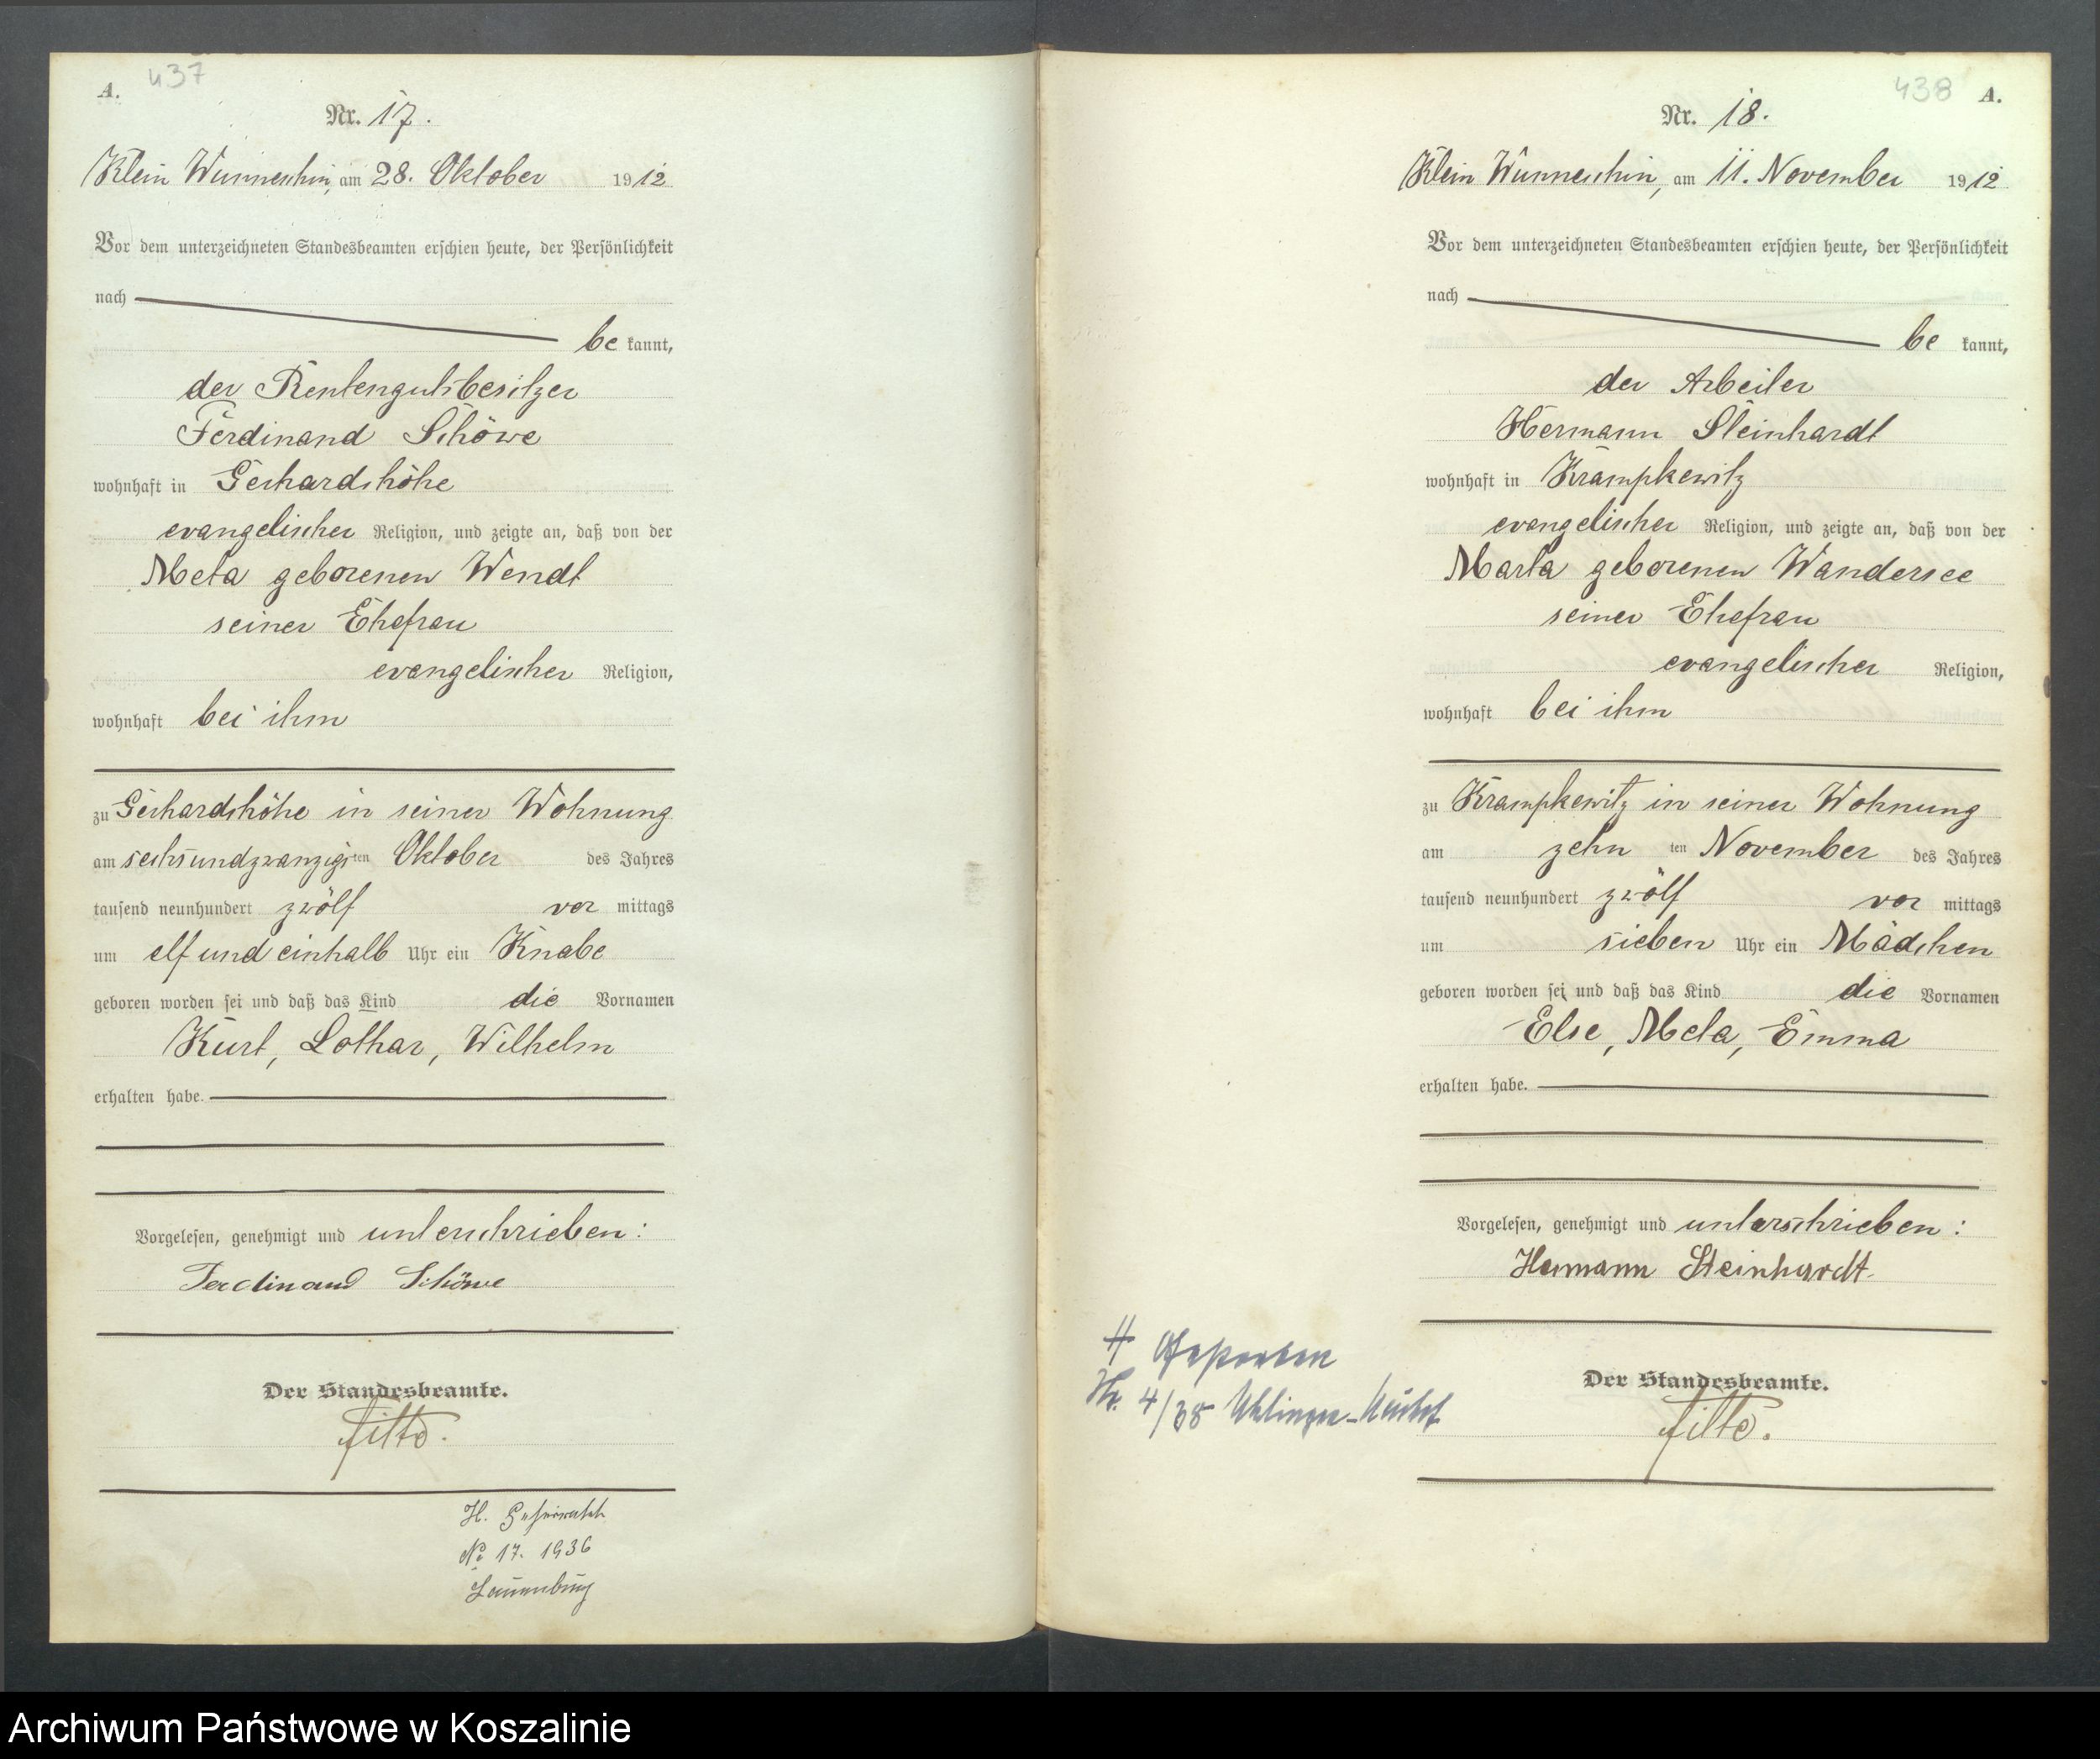 437
A.
Nr. 17.
Klein Wunneschin, am 28. Oktober 1912
Vor dem unterzeichneten Standesbeamten erschien heute, der Persönlichkeit
nach
be kannt,
der Rentengutsbesitzer
Ferdinand Schöwe
wohnhaft in Gerhardshöhe
evangelischer Religion, und zeigte an, daß von der
Meta geborenen Wendt
seiner Ehefrau
evangelischer Religion,
wohnhaft bei ihm
zu Gerhardshöhe in seiner Wohnung
am sechsundzwanzigsten Oktober des Jahres
tausend neunhundert zwölf vor mittags
um elf und einhalb Uhr ein Knabe
geboren worden sei und daß das Kind die Vornamen
Kurt, Lothar, Wilhelm
erhalten habe.
Vorgelesen, genehmigt und unterschrieben:
Ferdinand Schöwe
Der Standesbeamte.
H.
No 17. 1936
Lauenburg
438 A.
Nr. 18.
Klein Wunneschin, am 11. November 1912
Vor dem unterzeichneten Standesbeamten erschien heute, der Persönlichkeit
nach
be kannt,
der Arbeiter
Hermann Steinhardt
wohnhaft in Krampkewitz
evangelischer Religion, und zeigte an, daß von der
Marta geborenen Wandersee
seiner Ehefrau
evangelischer Religion,
wohnhaft bei ihm
zu Krampkewitz in seiner Wohnung
am zehn ten November des Jahres
tausend neunhundert zwölf vor mittags
um sieben Uhr ein Mädchen
geboren worden sei und daß das Kind die Vornamen
Else, Meta, Emma
erhalten habe.
Vorgelesen, genehmigt und unterschrieben:
Hermann Steinhardt.
Der Standesbeamte.
Gestorben
Nr. 4/38
Archiwum Państwowe w Koszalinie